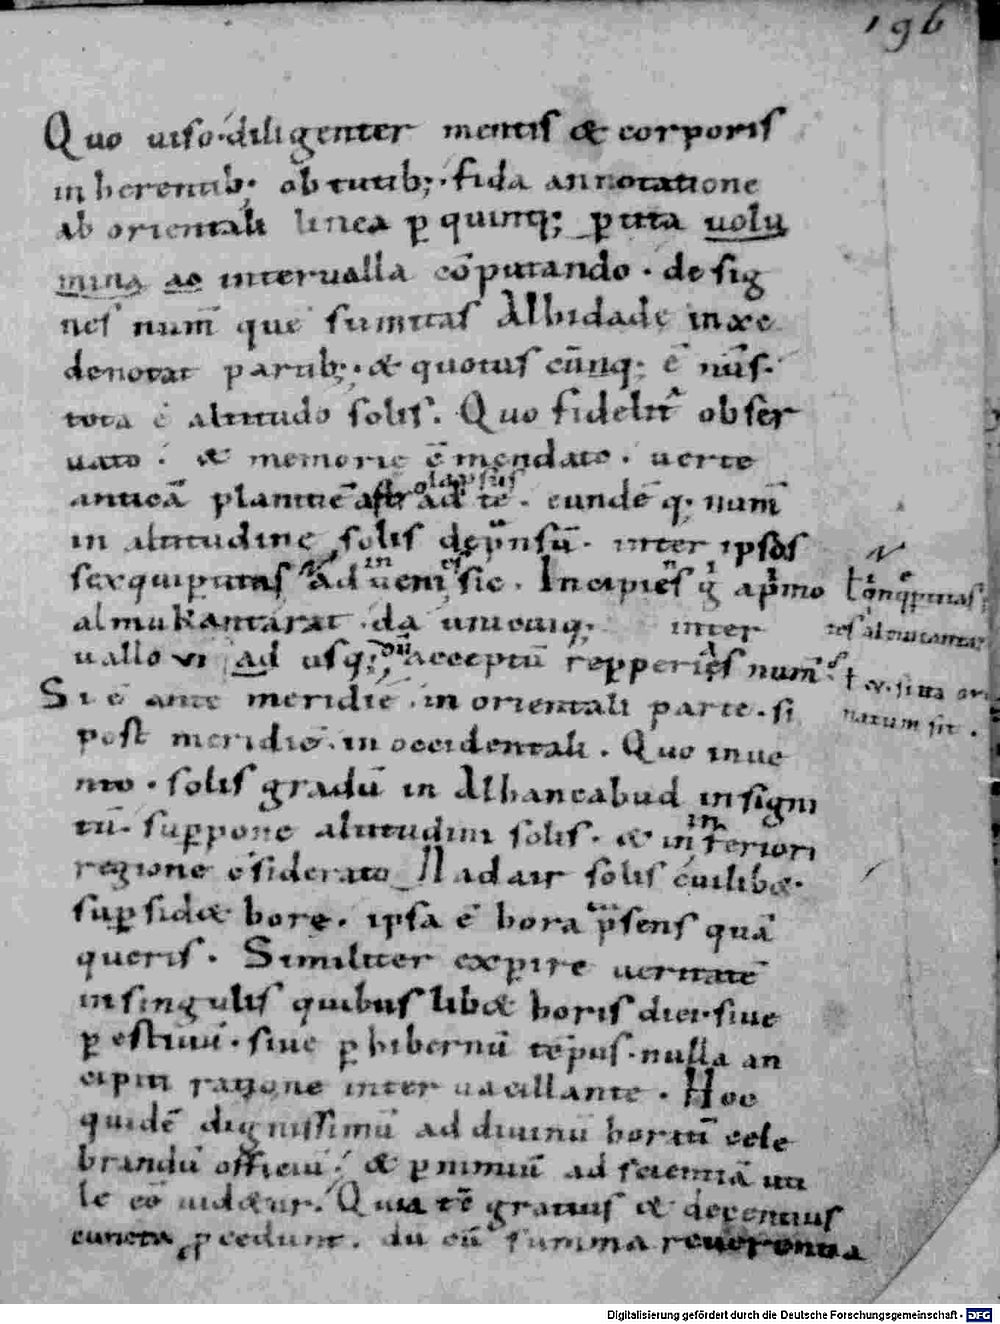 196
Quo uiso· diligenter mentis & corporis
inherentib; obtutib;· fida annotatione
ab orientali linea p̱ quinq; p̱tita uolu
mina ac interualla cōputando · desig
nes num̄ que sumitas Alhidade in xc
denotat partib;· & quotus cūnq; ē nūs·
tota ē altitudo solis. Quo fidelit̄ obser
uato · & memorie cōmendato · uerte
anticā planitiē astrolapsus ad te · eundē q; num̄
in altitudine solis dep̄nsū· inter ipsos
almukantarat · da unicuiq; inter
uallo vi ad usq; acceptū repperies num̄
Si ē ante meridiē · in orientali parte · si
post meridiē · in occidentali. Quo inue
nto · solis gradū in Alhancabud insigni
tū· suppone altitudini solis · & in inferiori
regione ↄsiderato Nadair solis cuilib&·
sup̱sid& hore · ipsa ē hora p̄sens quā
queris · Similiter exp̱ire ueritatē
in singulis quibuslib& horis diei· siue
p̱ estiuū · siue p̱ hibernū tēpus· nulla an
cipiti ratione inter uacillante · Hoc
quidē dignissimū ad diuinū horarū cele
brandū officiū · & p̱ nimiū ad scientiā uti
le eē uid&ur· Quia tē gratius & decentius
cuncta p̱cedunt · cū summa reuerentia
Digitalisierung gefördert durch die Deutsche Forschungsgemeinschaft - DFG